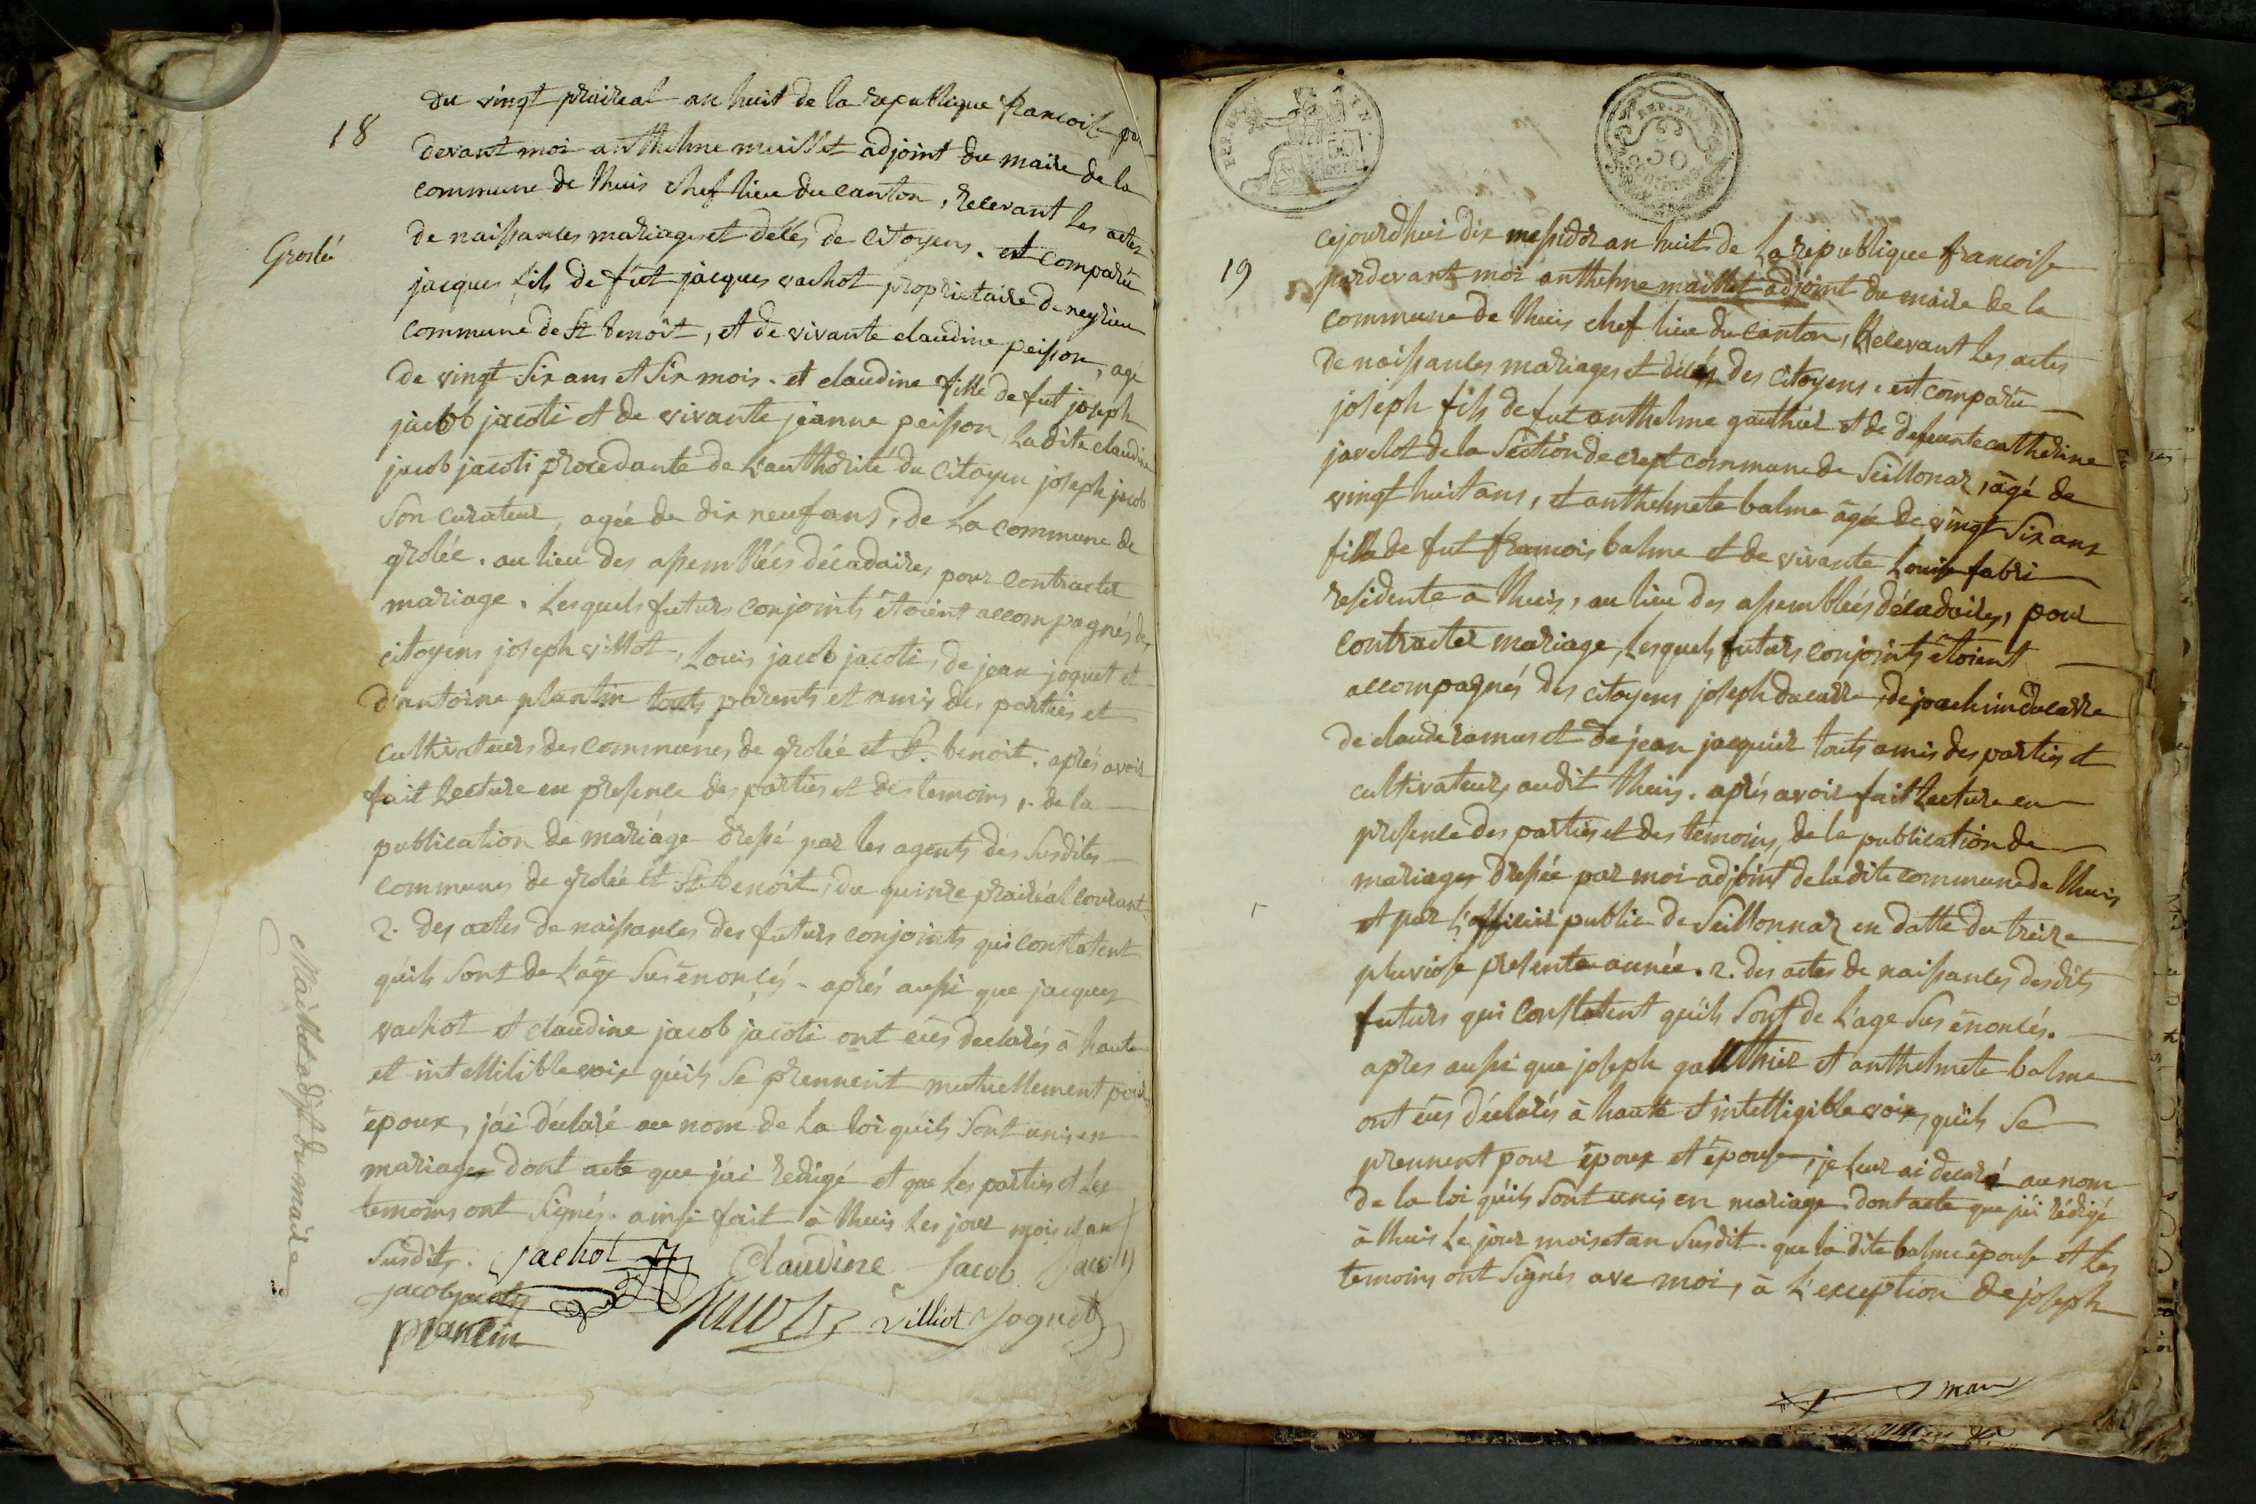 18
Groslée
du vingt prairéal an huit de la republique francoise par
devant moi anthelme maillet adjoint du maire de la
commune de lhuis chef lieu du canton, relevant les actes
de naissances mariages et délés de citoyens. est comparu
jacques fils de fut jacques vachot proprietaire de neyrieu
commune de St benoit, et de vivante claudine peisson, agé
de vingt Six ans et Six mois. et claudine fille de fut joseph
jacob jacoti et de vivante jeanne peisson, la dite claudine
jacob jacoti procedante de l'authorité du citoyen joseph jacob
Son curateur, agée de dix neuf ans, de la commune de
grolée. au lieu des assemblées décadaires pour contracter
mariage. Lesquels futurs conjoints étoient accompagnés des
citoyens joseph villot, Louis jacob jacoti, de jean joquet et
d'antoine plantin touts parents et amis des parties et
cultivateurs des communes de grolée et St. benoit. aprés avoir
fait Lecture en presence des parties et des temoins, . de la
publication de mariage dressé par les agents des Susdites
communes de grolée et St benoit, du quinze prairéal courant.
2. des actes de naissances des futurs conjoints qui constatent
qu'ils Sont de L'age Sus énoncés. aprés aussi que jacques
vachot et claudine jacob jacoti ont eûs declarés à haute
et intellilible voix qu'ils Se prennent mutuellement pour
époux, j'ai déclaré au nom de La loi qu'ils Sont unis en
mariages dont acte que j'ai redigé et que Les parties et les
temoins ont Signés. ainsi fait à lhuis Les jour mois et an
Susdits. Vachot Claudine Jacob Jacoti
jacob jacoti Villiot Joquet
plantin
Maillet adjt du maire
19
cejourdhui dix messidor an huit de La republique francoise
pardevant moi anthelme maillet adjoint du maire de la
commune de lhuis chef lieu du canton, Relevant Les actes
de naissances mariages et délés des citoyens. est comparu
joseph fils de fut anthelme gauthier et de defeunte catherine
javelot de la Section de crept commune de Seillonaz, agé de
vingt huit ans, et anthelmete balme agée de vingt Six ans
fille de fut francois balme et de vivante Louise fabri
residente à lhuis, au lieu des assemblées décadaires, pour
contracter mariage, Lesquels futurs conjoints étoient
accompagnés des citoyens joseph ducarre, de joachim ducarre
de claude ramus et de jean jacquier touts amis des parties et
cultivateurs audit lhuis. aprés avoir fait Lecture en
presence des parties et des temoins, de la publication de
mariages dressée par moi adjoint de ladite commune de lhuis
et par L'officier public de Seillonnaz en datte du treize
pluviose presente année. 2. des actes de naissances desdits
futurs qui constatent qu'ils Sont de L'age Sus énoncés.
apres aussi que joseph gauthier et anthelmete balme
ont eûs déclarés à haute et intelligible voix, qu'ils Se
prennent pour époux et épouse, je Leur ai declaré au nom
de la loi qu'ils Sont unis en mariage. dont acte que j'ai rédigé
à lhuis Le jour mois et an Susdit. que la dite balme épouse et Les
temoins ont Signés ave moi, à L'exception de joseph
REP. FRA.
50